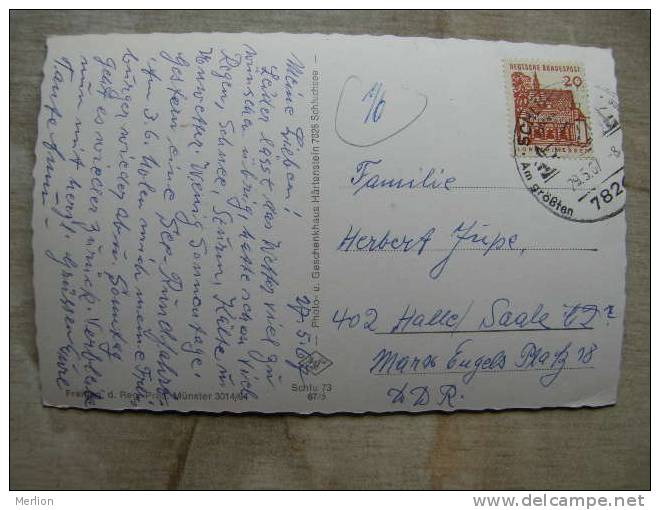 Meine Lieben!
Leider lässt das Wetter viel zu
wünschen übrig hatte schon viel
Regen, Schnee, Sturm, Kälte u.
Unwetter. Wenig Sonnentage.
Gestern eine See-Rundfahrt.
Am 3.6. holen mich meine Frei-
burger wieder ab u. Sonntag
geht es wieder zurück. Verbleibe
nun mit herzl. Grüssen Eure
Tante
27.5.67
Photo- u. Geschenkhaus Härtenstein 7826 Schluchsee
Schlu 73
67/5
Freigeg. d. Reg. Präs. Münster 3014/64
DEUTSCHE BUNDESPOST
20
Am größten
29.5.67
-8
782
Familie
Herbert Jüpe,
402 Halle/Saale
Marx Engels Platz 18
DDR.
Merlion
www.delcampe.net